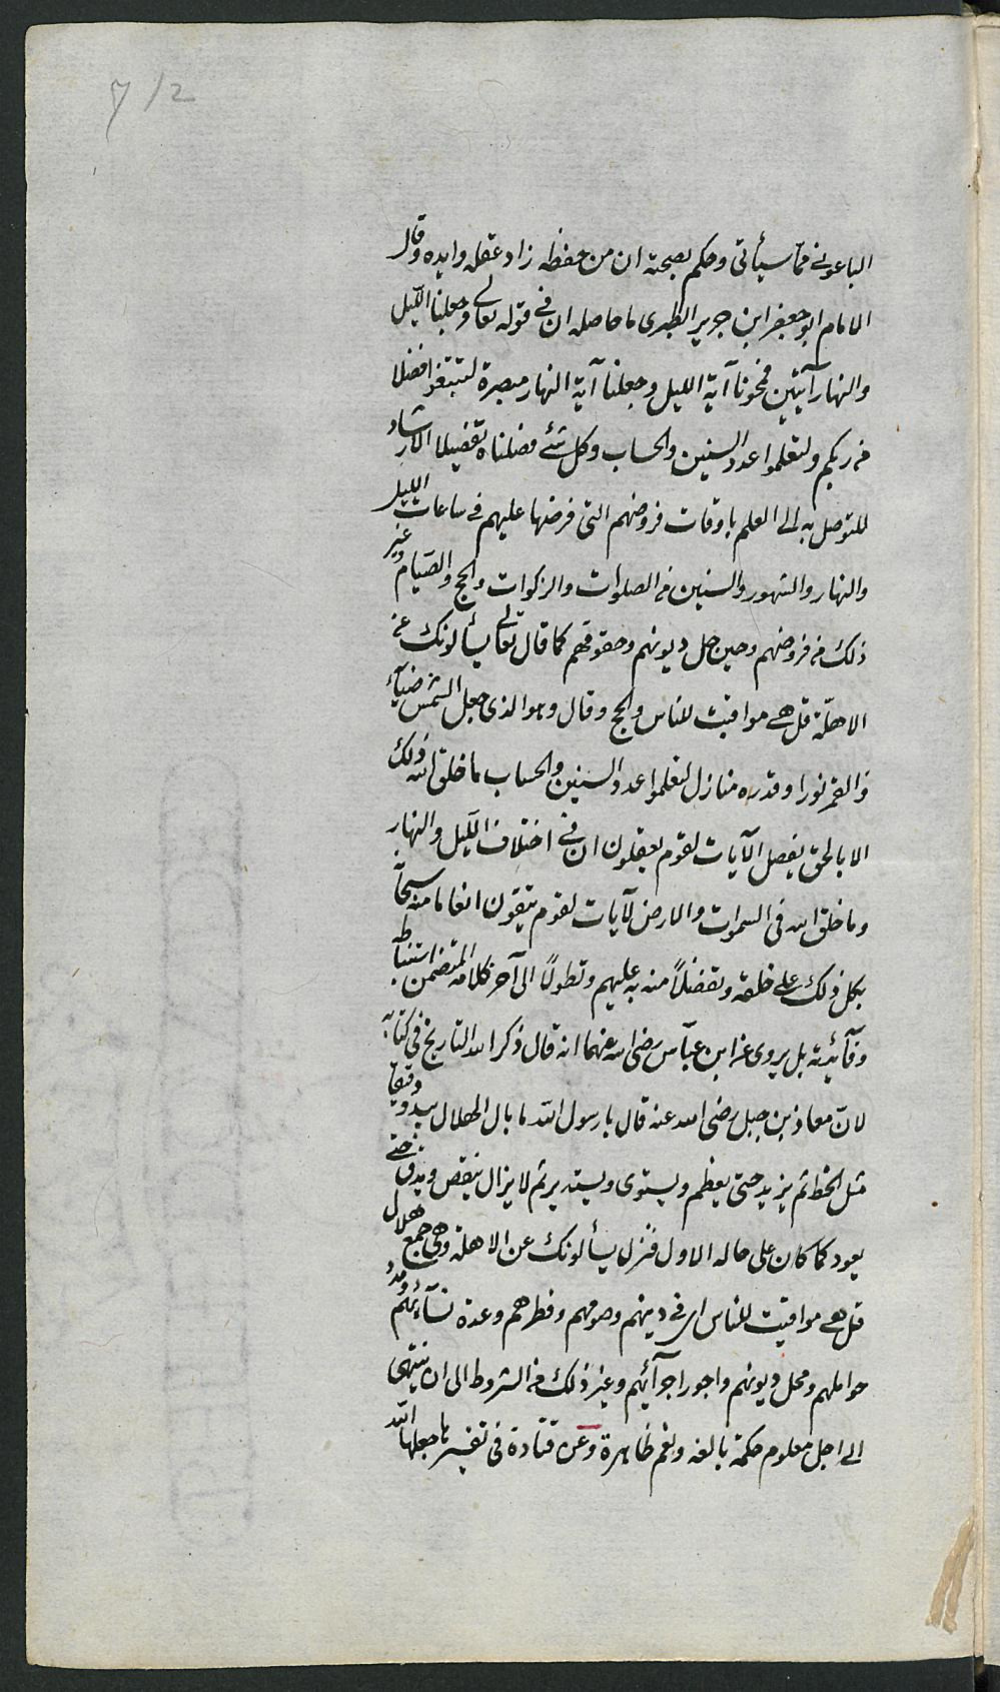 7/2
الباعونى فيما سيأتى وحكم بصحته ان من حفظه زاد عقله وايده وقال
الامام ابو جعفر ابن جرير الطبرى ما حاصله ان فى قوله تعالى وجعلنا الليل
والنهار آيتين فمحونا آية الليل وجعلنا آية النهار مبصرة لتبتغوا فضلا
من ربكم ولتعلموا عدد السنين والحساب وكل شئ فصلناه تفصيلا الارشاد
للتوصل به الى العلم باوقات فروضهم التى فرضها عليهم فى ساعات الليل
والنهار والشهور والسنين من الصلوات والزكوات والحج والصيام وغير
ذلك من فروضهم وحين حل ديونهم وحقوقهم كما قال تعالى يسألونك عن
الاهلّة قل هى مواقيت للناس والحج وقال وهو الذى جعل الشمس ضياء
والقمر نورا وقدره منازل لتعلموا عدد السنين والحساب ما خلق الله ذلك
الا بالحق يفصل الآيات لقوم يعقلون ان فى اختلاف الليل والنهار
وما خلق الله فى السموات والارض لآيات لقوم يتقون انعاما منه سبحانه
بكل ذلك على خلقه وتفضلاً منه به عليهم وتطولاً الى آخر كلامه المتضمن استنباطه
وتأيدته بل يروى عن ابن عباس رضى الله عنهما انه قال ذكر الله التاريخ فى كتابه
لان معاذ بن جبل رضى الله عنه قال يا رسول الله ما بال الهلال يبدو دقيقا
مثل الخط ثم يزيد حتى يعظم ويستوى ويستدير ثم لا يزال ينقص ويدق حتى
يعود كما كان على حاله الاول فنزل يسألونك عن الاهلة وهى جمع هلال
قل هى مواقيت للناس اى فى دينهم وصومهم وفطرهم وعدة نسآئهم ومدد
حواملهم ومحل ديونهم واجور اجرآئهم وغير ذلك من الشروط الى ان ينتهى
الى اجل معلوم حكمة بالغه ونعم ظاهرة وعن قتادة فى تفسيرها جعلها الله